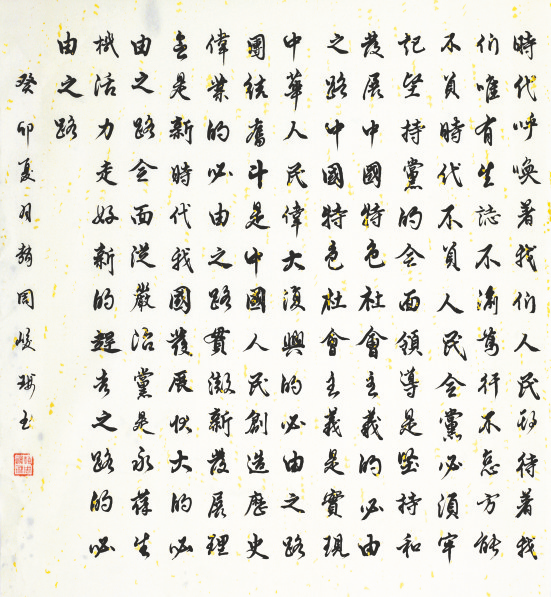 時代呼喚著我们人民期待著我
们唯有矢誌不渝篤行不怠方能
不負時代不負人民全黨必須牢
記堅持黨的全面領導是堅持和
發展中國特色社會主義的必由
之路中國特色社會主義是實現
中華人民偉大復興的必由之路
團結奮斗是中國人民創造歷史
偉業的必由之路貫徹新發展理
念是新時代我國發展壯大的必
由之路全面從嚴治黨是永葆生
機活力走好新的趕考之路的必
由之路
癸卯夏月